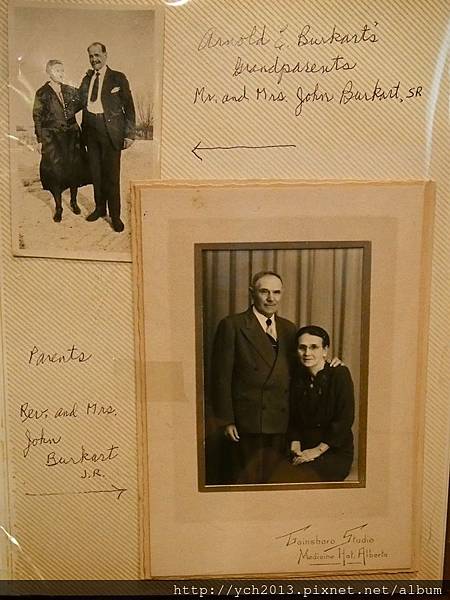 Arnold E. Burkart's
Grandparents
Mr. and Mrs. John Burkart, SR
Parents
Rev. and Mrs.
John
Burkart
J.R.
Gainsboro Studio
Medicine Hat, Alberta
http://ych2013.pixnet.net/album